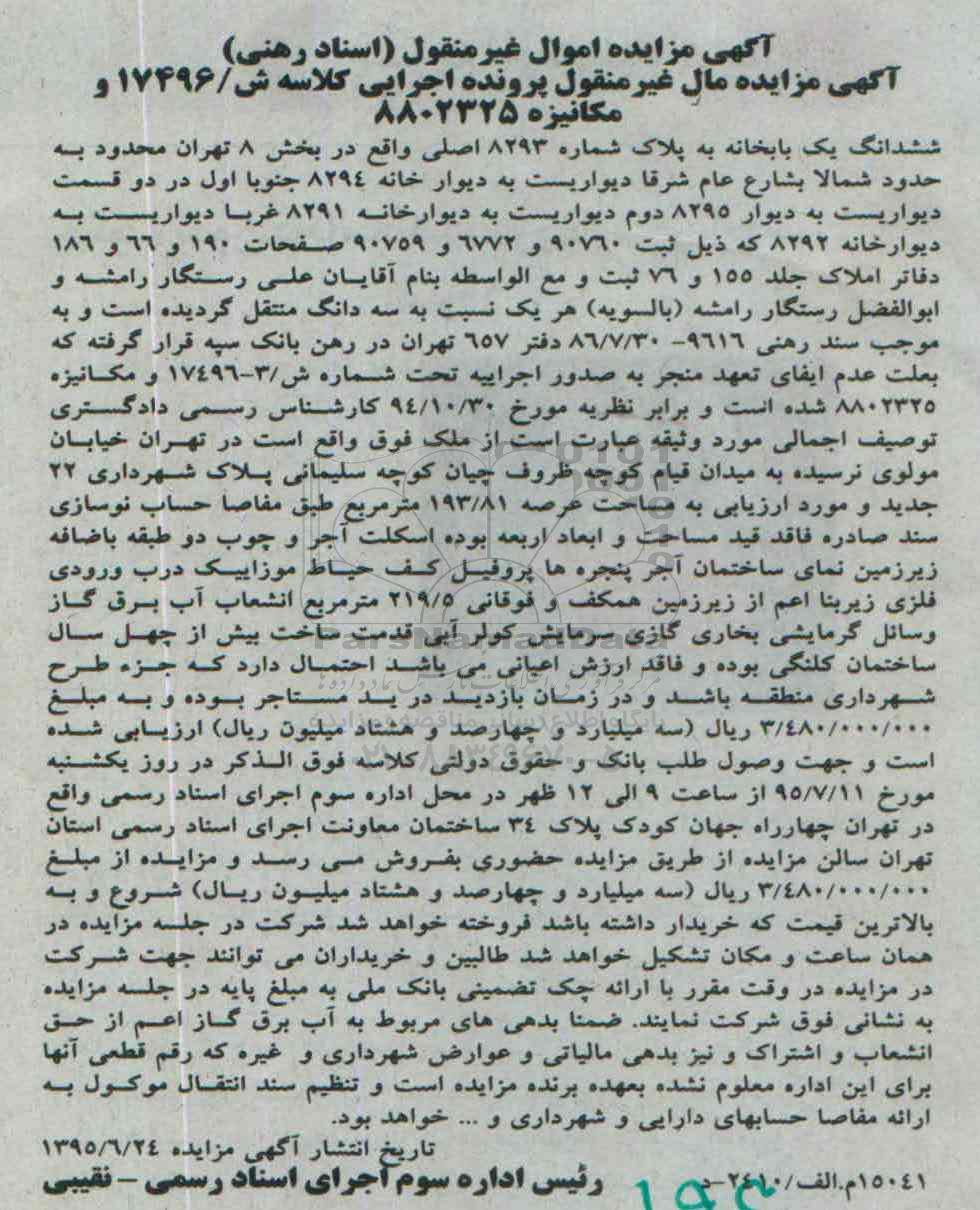 آگهی مزایده اموال غیرمنقول (اسناد رهنی)
آگهی مزایده مال غیرمنقول پرونده اجرایی کلاسه ش/۱۷۴۹۶ و
مکانیزه ۸۸۰۲۳۲۵
ششدانگ یک بابخانه به پلاک شماره ۸۲۹۳ اصلی واقع در بخش ۸ تهران محدود به
حدود شمالا بشارع عام شرقا دیواریست به دیوار خانه ۸۲۹٤ جنوبا اول در دو قسمت
دیواریست به دیوار ۸۲۹۵ دوم دیواریست به دیوارخانه ۸۲۹۱ غربا دیواریست به
دیوارخانه ۸۲۹۲ که ذیل ثبت ۹۰۷٦۰ و ٦۷۷۲ و ۹۰۷۵۹ صفحات ۱۹۰ و ٦٦ و ۱۸٦
دفاتر املاک جلد ۱۵۵ و ۷٦ ثبت و مع الواسطه بنام آقایان علی رستگار رامشه و
ابوالفضل رستگار رامشه (بالسویه) هر یک نسبت به سه دانگ منتقل گردیده است و به
موجب سند رهنی ۹٦۱٦- ۸٦/۷/۳۰ دفتر ٦۵۷ تهران در رهن بانک سپه قرار گرفته که
بعلت عدم ایفای تعهد منجر به صدور اجراییه تحت شماره ش/۳-۱۷٤۹٦ و مکانیزه
۸۸۰۲۳۲۵ شده است و برابر نظریه مورخ ۹٤/۱۰/۳۰ کارشناس رسمی دادگستری
توصیف اجمالی مورد وثیقه عبارت است از ملک فوق واقع است در تهران خیابان
مولوی نرسیده به میدان قیام کوچه ظروف چیان کوچه سلیمانی پلاک شهرداری ۲۲
جدید و مورد ارزیابی به مساحت عرصه ۱۹۳/۸۱ مترمربع طبق مفاصا حساب نوسازی
سند صادره فاقد قید مساحت و ابعاد اربعه بوده اسکلت آجر و چوب دو طبقه باضافه
زیرزمین نمای ساختمان آجر پنجره ها پروفیل کف حیاط موزاییک درب ورودی
فلزی زیربنا اعم از زیرزمین همکف و فوقانی ۲۱۹/۵ مترمربع انشعاب آب برق گاز
وسائل گرمایشی بخاری گازی سرمایش کولر آبی قدمت ساخت بیش از چهل سال
ساختمان کلنگی بوده و فاقد ارزش اعیانی می باشد احتمال دارد که جزء طرح
شهرداری منطقه باشد و در زمان بازدید در ید مستاجر بوده و به مبلغ
۳/٤۸۰/۰۰۰/۰۰۰ ریال (سه میلیارد و چهارصد و هشتاد میلیون ریال) ارزیابی شده
است و جهت وصول طلب بانک و حقوق دولتی کلاسه فوق الذکر در روز یکشنبه
مورخ ۹۵/۷/۱۱ از ساعت ۹ الی ۱۲ ظهر در محل اداره سوم اجرای اسناد رسمی واقع
در تهران چهارراه جهان کودک پلاک ۳٤ ساختمان معاونت اجرای اسناد رسمی استان
تهران سالن مزایده از طریق مزایده حضوری بفروش می رسد و مزایده از مبلغ
۳/٤۸۰/۰۰۰/۰۰۰ ریال (سه میلیارد و چهارصد و هشتاد میلیون ریال) شروع و به
بالاترین قیمت که خریدار داشته باشد فروخته خواهد شد شرکت در جلسه مزایده در
همان ساعت و مکان تشکیل خواهد شد طالبین و خریداران می توانند جهت شرکت
در مزایده در وقت مقرر با ارائه چک تضمینی بانک ملی به مبلغ پایه در جلسه مزایده
به نشانی فوق شرکت نمایند. ضمنا بدهی های مربوط به آب برق گاز اعم از حق
انشعاب و اشتراک و نیز بدهی مالیاتی و عوارض شهرداری و غیره که رقم قطعی آنها
برای این اداره معلوم نشده بعهده برنده مزایده است و تنظیم سند انتقال موکول به
ارائه مفاصا حسابهای دارایی و شهرداری و ... خواهد بود.
تاریخ انتشار آگهی مزایده ۱۳۹۵/٦/۲٤
۱۵۰٤۱م.الف/۲٤۱۰-د رئیس اداره سوم اجرای اسناد رسمی – نقیبی
ParsNamadData